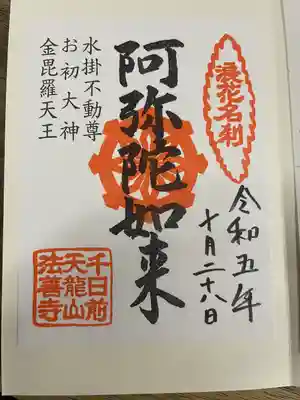 浪花名刹
令和五年
十月二十八日
阿弥陀如来
水掛不動尊
お初大神
金毘羅天王
千日前
天龍山
法善寺